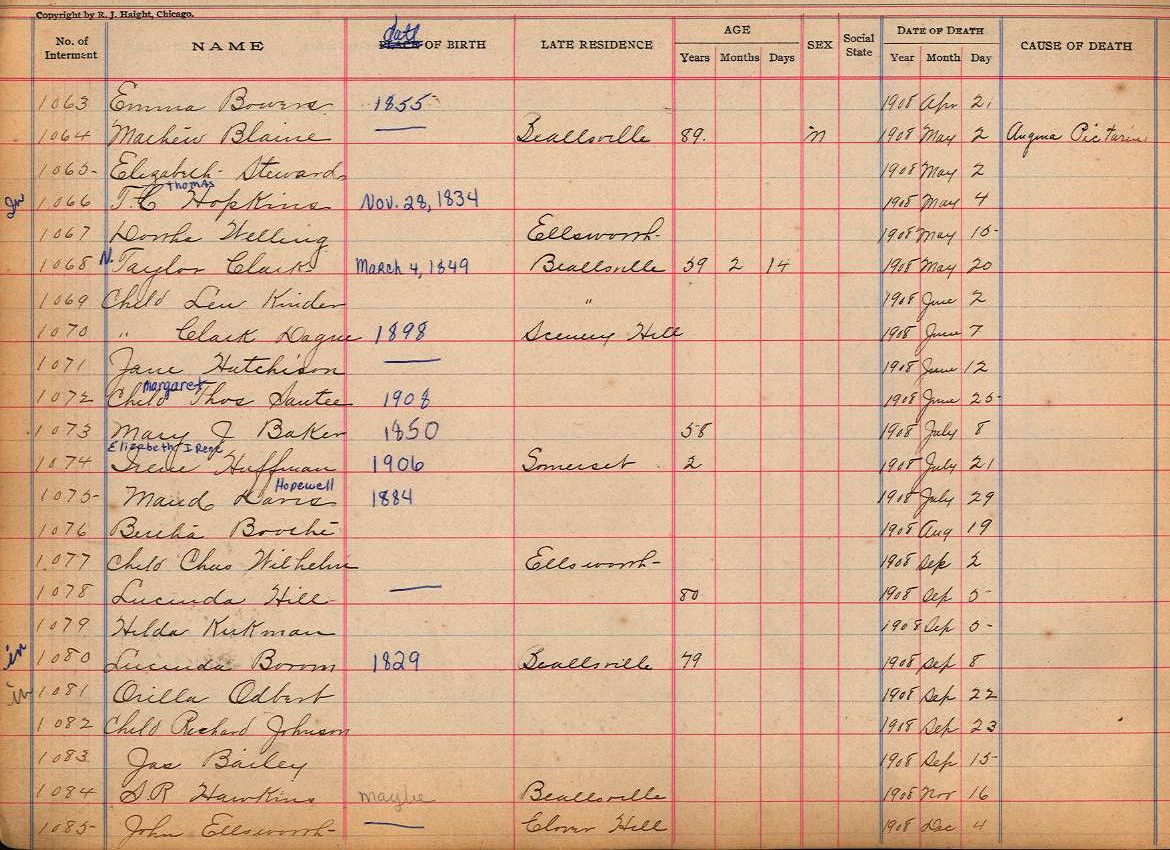 Copyright by R. J. Haight, Chicago.
No. of Interment NAME date PLACE OF BIRTH LATE RESIDENCE AGE Years Months Days SEX Social State DATE OF DEATH Year Month Day CAUSE OF DEATH
1063 Emma Bowers 1855 1908 Apr 21
1064 Mathew Blaine — Beallsville 89. M 1908 May 2 Angina
1065 Elizabeth Steward 1908 May 2
In 1066 T.C Thomas Hopkins Nov. 28, 1834 1908 May 4
1067 Welling Ellsworth 1908 May 15
1068 N. Taylor Clark March 4, 1849 Beallsville 59 2 14 1908 May 20
1069 Child Lew Kinder " 1908 June 2
1070 " Clark Dague 1898 Scenery Hill 1908 June 7
1071 Jane Hutchison — 1908 June 12
1072 Child margaret Thos Sautee 1908 1908 June 25
1073 Mary J Baker 1850 58 1908 July 8
1074 Elizabeth Irene Irene Huffman 1906 Somerset 2 1908 July 21
1075 Maud Davis Hopewell 1884 1908 July 29
1076 Bertha 1908 Aug 19
1077 Child Chas Wilhelm Ellsworth 1908 Sep 2
1078 Lucinda Hill — 80 1908 Sep 5
1079 Hilda Kirkman 1908 Sep 5
in 1080 Lucinda Borom 1829 Beallsville 79 1908 Sep 8
in 1081 Orilla Odbert 1908 Sep 22
1082 Child Richard Johnson 1908 Sep 23
1083 Jas Bailey 1908 Sep 15
1084 S.R Hawkins maybe Beallsville 1908 Nov 16
1085 John Ellsworth — Clover Hill 1908 Dec 4